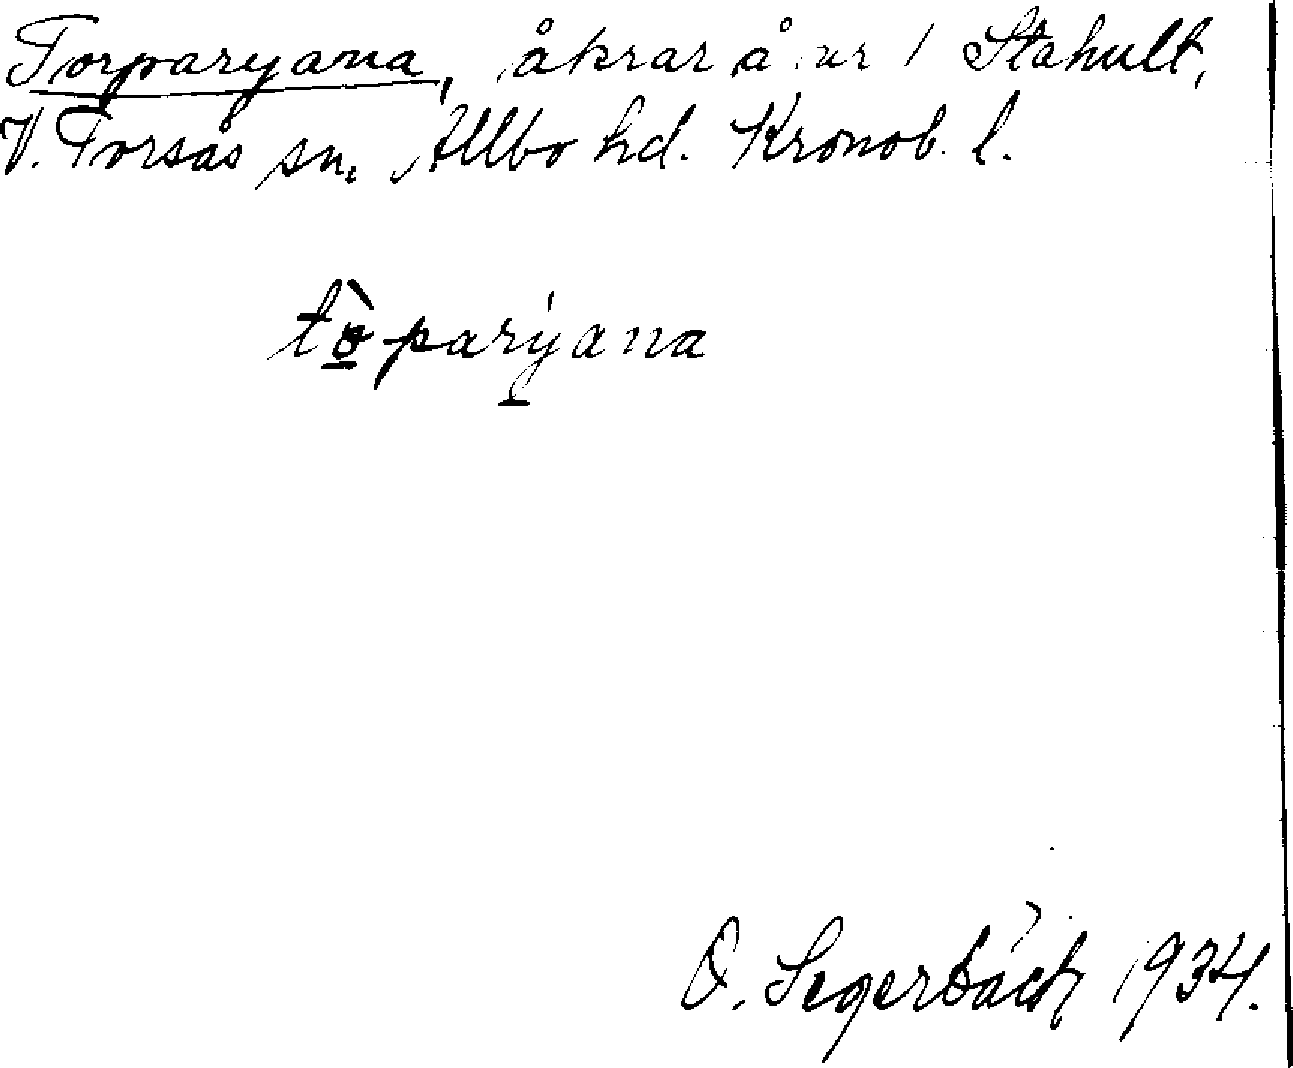 Torparyana, åkrar å ur 1 Stahult,
V. Torsås sn. Allbo hd. Kronob. l.
tòparyana
O. Segerbäck 1934.